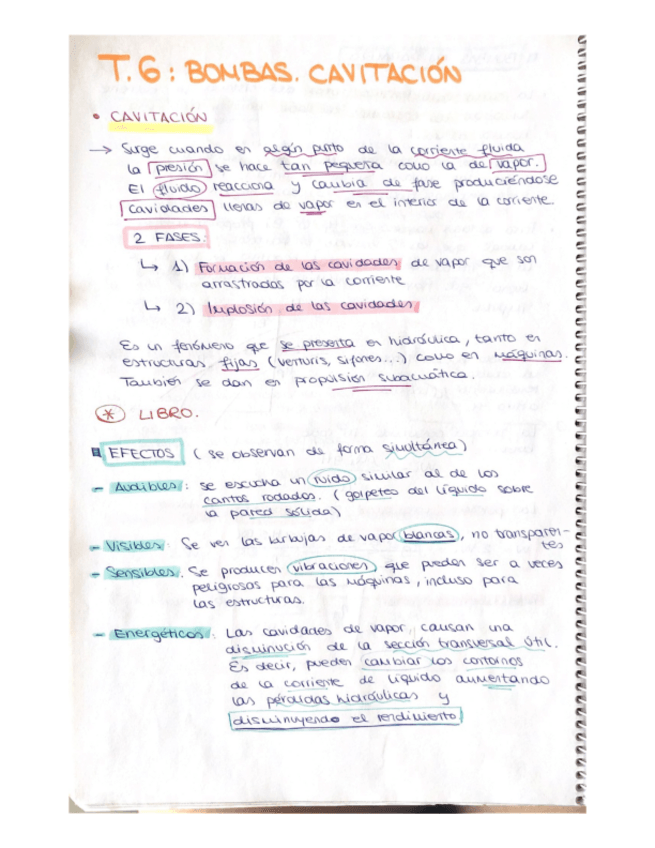 T.6: BOMBAS. CAVITACIÓN
• CAVITACIÓN
→ Surge cuando en algún punto de la corriente fluida
la presión se hace tan pequeña como la de vapor.
El fluido reacciona y cambia de fase produciéndose
cavidades llenas de vapor en el interior de la corriente.
2 FASES.
↳ 1) Formación de las cavidades de vapor que son
arrastradas por la corriente
↳ 2) Implosión de las cavidades
Es un fenómeno que se presenta en hidráulica, tanto en
estructuras fijas (venturis, sifones...) como en máquinas.
También se dan en propulsión subacuática.
* LIBRO.
EFECTOS (se observan de forma simultánea)
- Audibles: se escucha un ruido similar al de los
cantos rodados. (golpeteo del líquido sobre
la pared sólida)
- Visibles: Se ven las burbujas de vapor blancas, no transparen-
tes
- Sensibles. Se producen vibraciones que pueden ser a veces
peligrosos para las máquinas, incluso para
las estructuras.
- Energéticos: Las cavidades de vapor, causan una
disminución de la sección transversal útil.
Es decir, pueden cambiar los contornos
de la corriente de líquido aumentando
las pérdidas hidráulicas y
disminuyendo el rendimiento